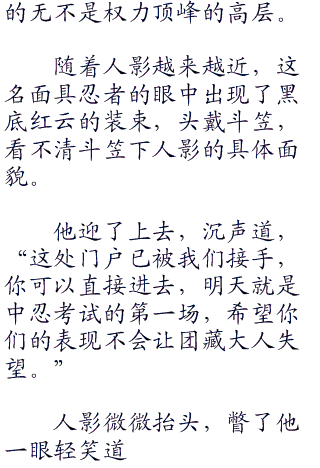 的无不是权力顶峰的高层。
随着人影越来越近，这
名面具忍者的眼中出现了黑
底红云的装束，头戴斗笠，
看不清斗笠下人影的具体面
貌。
他迎了上去，沉声道，
“这处门户已被我们接手，
你可以直接进去，明天就是
中忍考试的第一场，希望你
们的表现不会让团藏大人失
望。”
人影微微抬头，瞥了他
一眼轻笑道